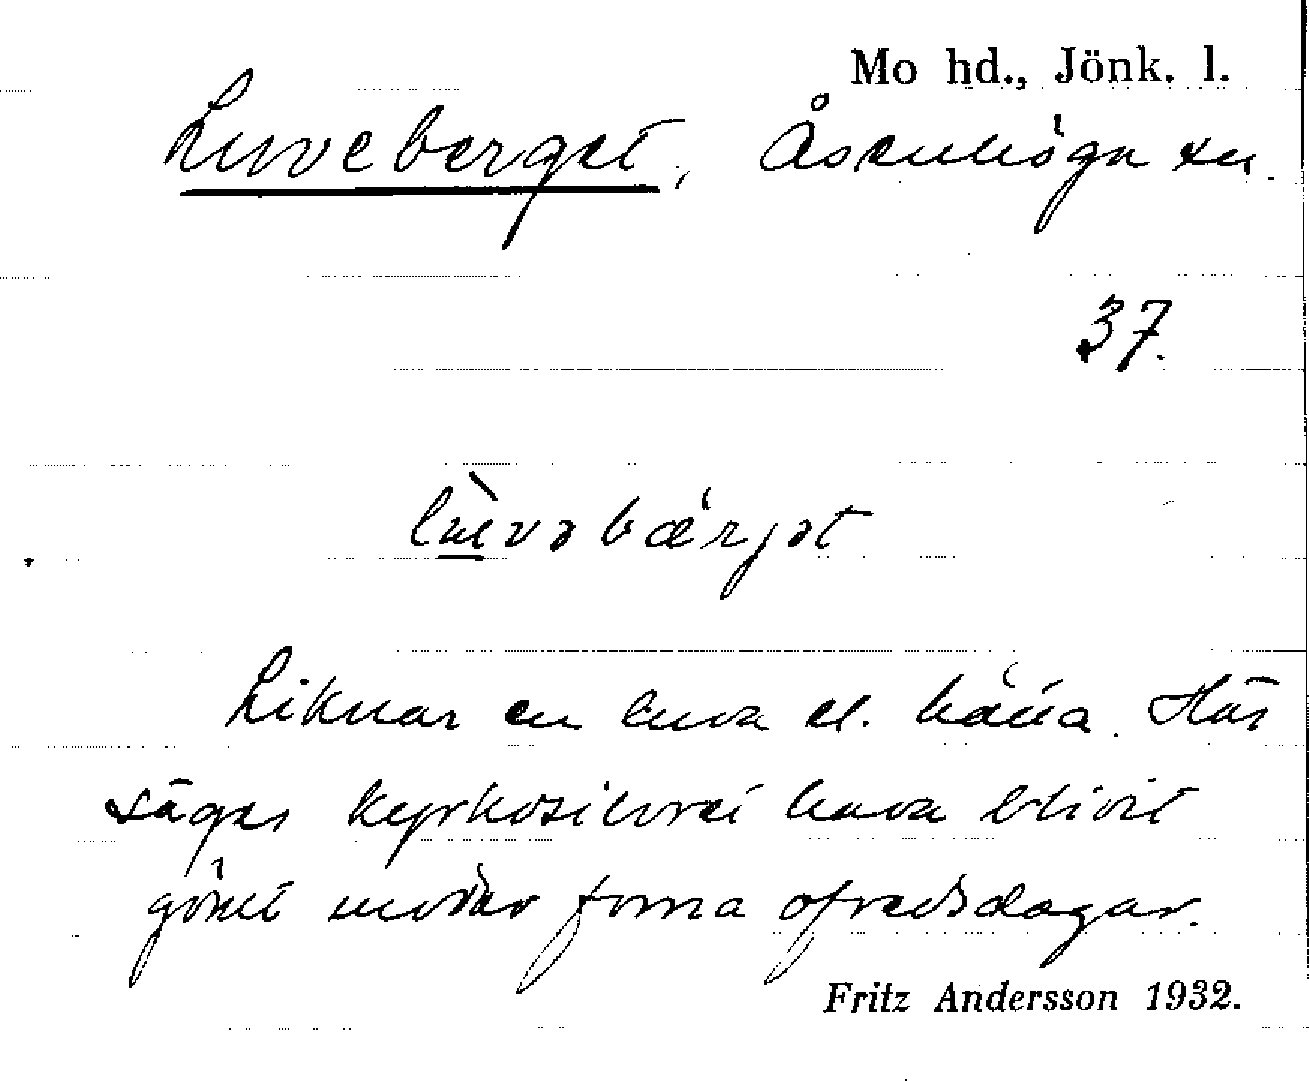 Mo hd., Jönk. l.
Luveberget, Åsenhöga sn.
37.
lùvəbærjət
Liknar en luva el. hätta. Här
säges kyrkosilvret hava blivit
gömt under forna ofredsdagar.
Fritz Andersson 1932.